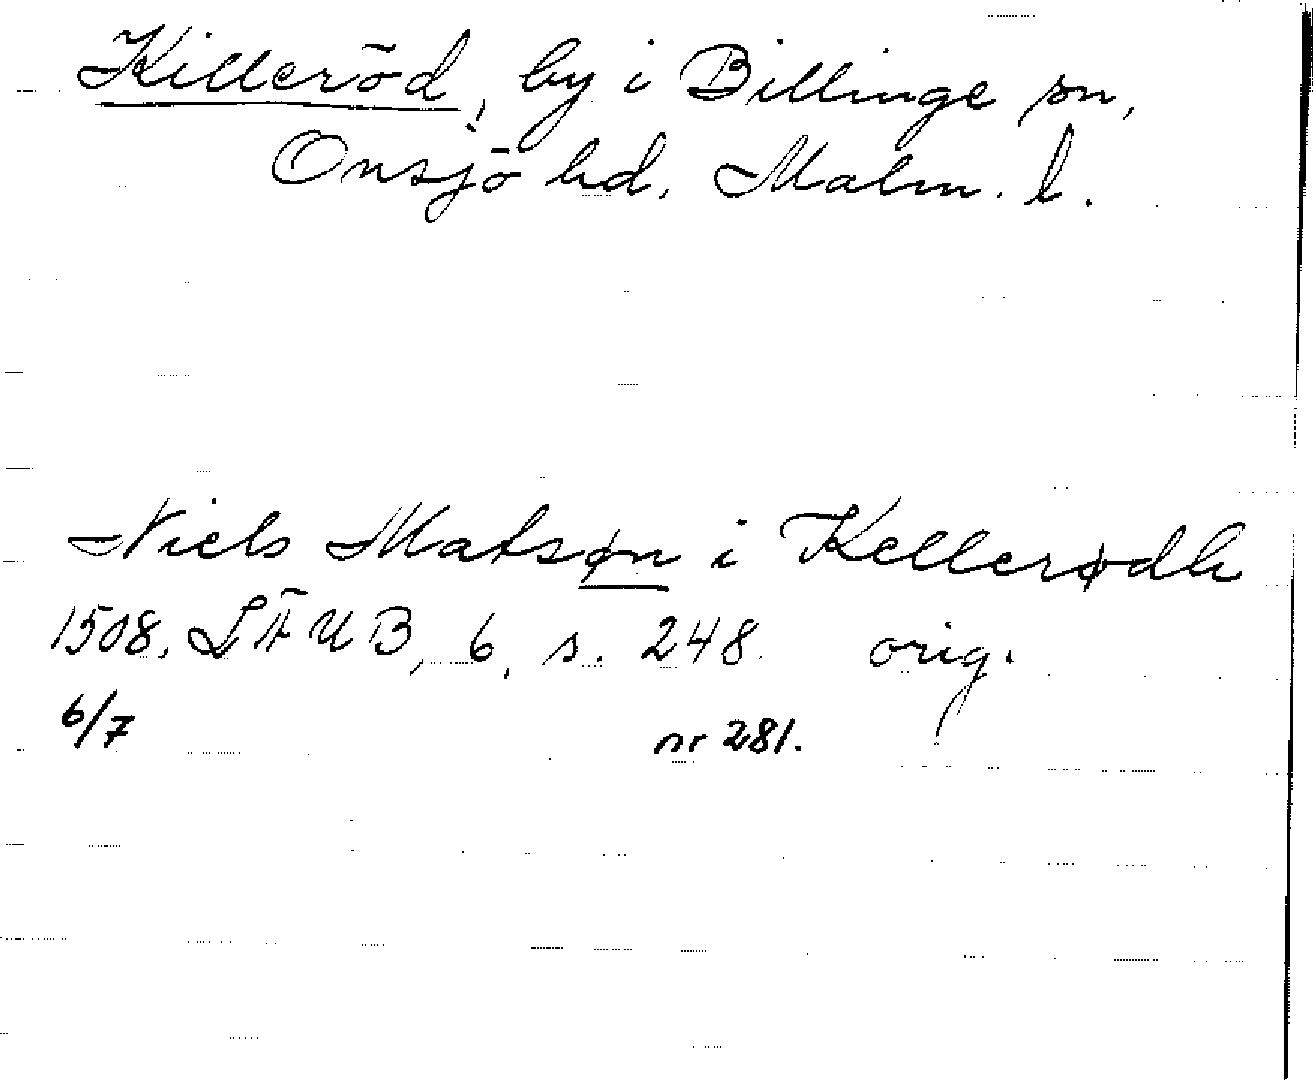 Killeröd, by i Billinge sn,
Onsjö hd, Malm. l.
Niels Matsøn i Kellerødh
1508. LÄUB, 6, s. 248. orig.
6/7 nr 281.